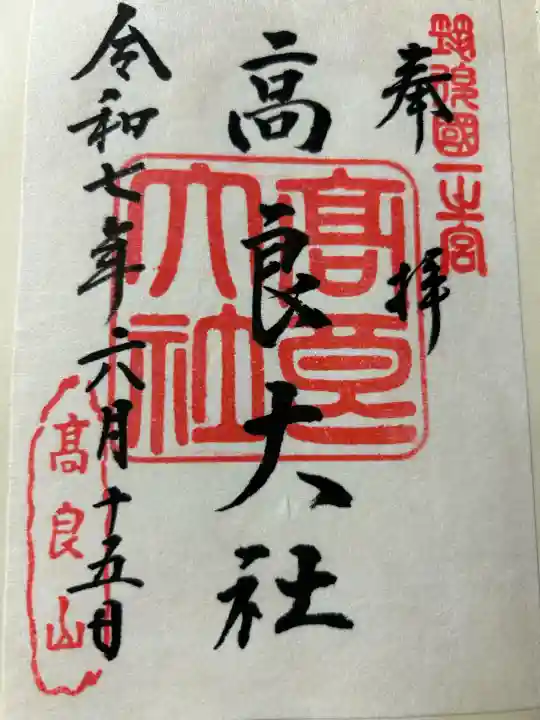 筑後國一之宮
奉拝
高良大社
髙良大社
令和七年六月十五日
髙良山